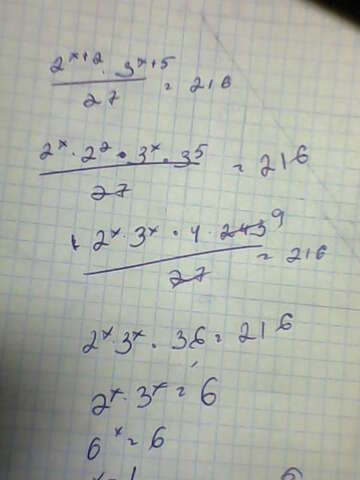 2^{x+2} · 3^{x+5} / 27 = 216
2^x · 2^2 · 3^x · 3^5 / 27 = 216
2^x · 3^x · 4 · 243 9 / 27 = 216
2^x · 3^x · 36 = 216
2^x · 3^x = 6
6^x = 6